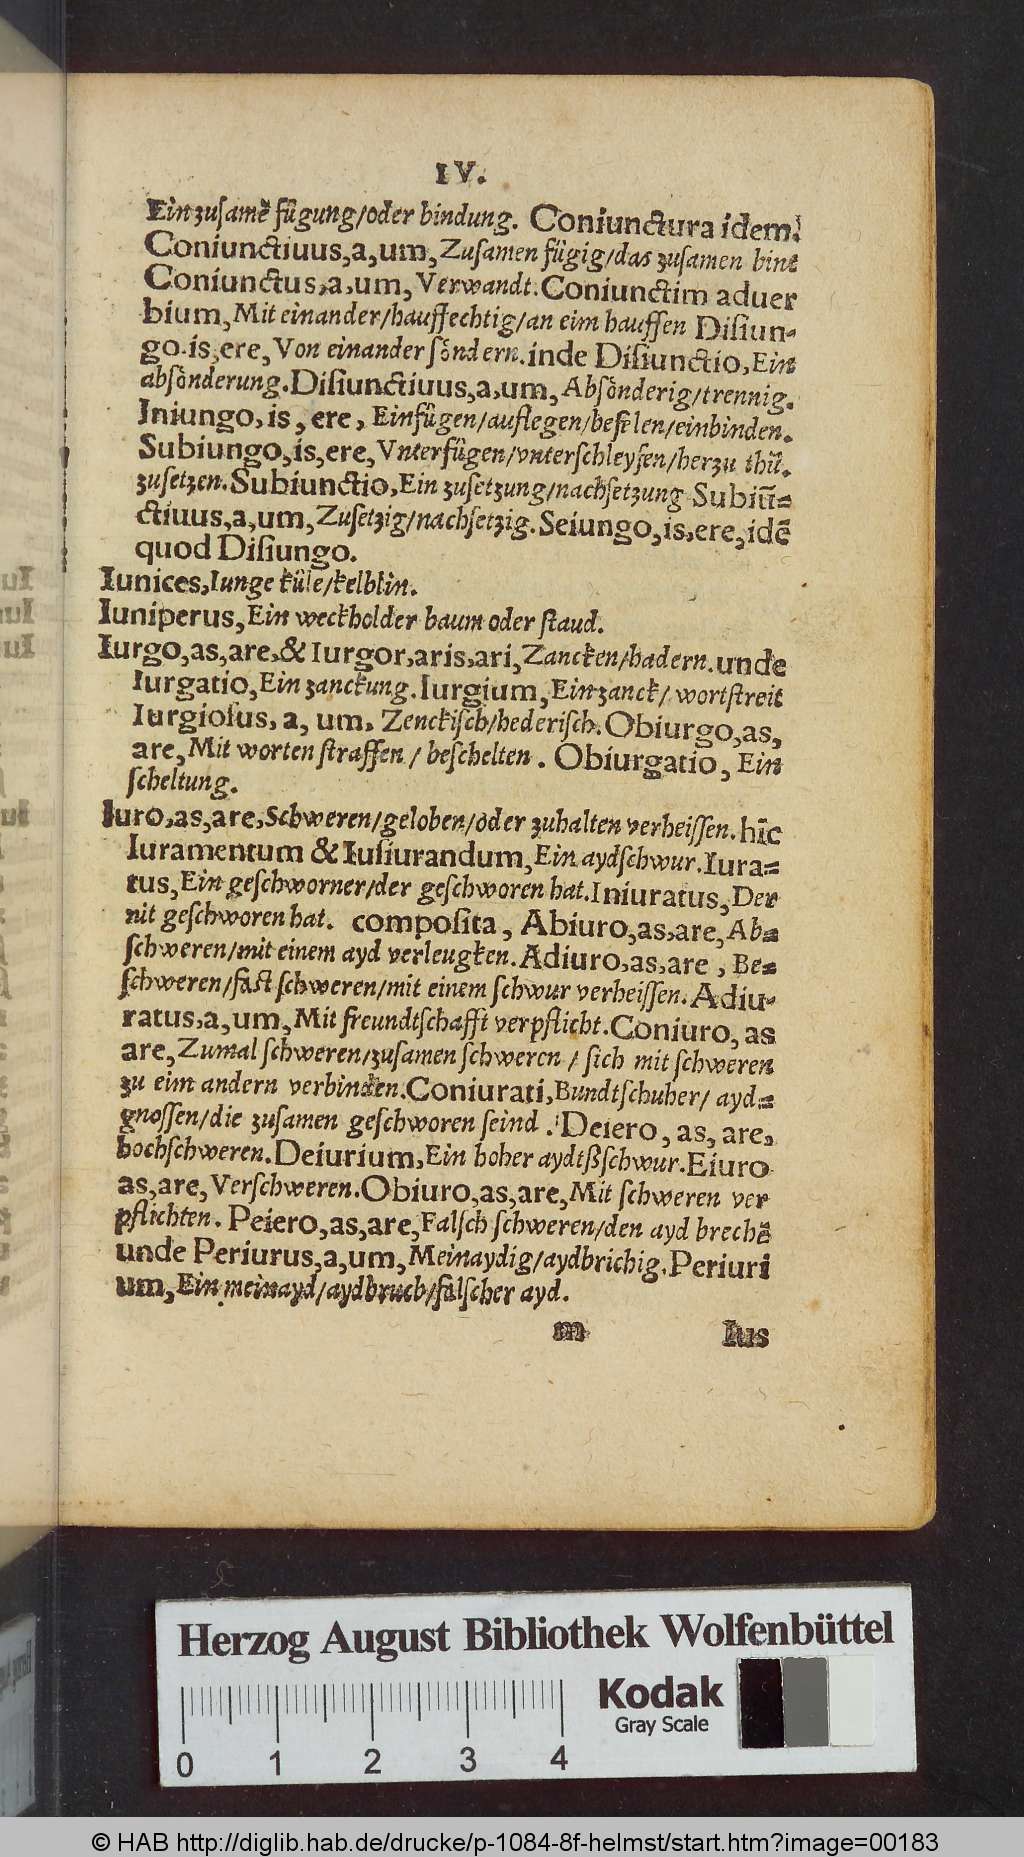 IV.
Ein zusamē fügung/oder bindung. Coniunctura idem.
Coniunctiuus,a,um, Zusamen fügig/das zusamen bint
Coniunctus,a,um, Verwandt. Coniunctim aduer
bium, Mit einander/hauffechtig/an eim hauffen Disiun-
go.is,ere, Von einander söndern. inde Disiunctio, Ein
absönderung. Disiunctiuus,a,um, Absönderig/trennig.
Iniungo,is, ere, Einfügen/auflegen/befelen/einbinden.
Subiungo,is,ere, Vnterfügen/vnterschleyfen/herzu thū.
zusetzen. Subiunctio, Ein zusetzung/nachsetzung Subiū=
ctiuus,a,um, Zusetzig/nachsetzig. Seiungo,is,ere,idē
quod Disiungo.
Iunices, Iunge küle/kelblin.
Iuniperus, Ein weckholder baum oder staud.
Iurgo,as,are,& Iurgor,aris,ari, Zancken/hadern. unde
Iurgatio, Ein zanckung. Iurgium, Ein zanck/ wortstreit
Iurgiosus, a, um, Zenckisch/hederisch. Obiurgo,as,
are, Mit worten straffen / beschelten. Obiurgatio, Ein
scheltung.
Iuro,as,are, Schweren/geloben/oder zuhalten verheissen. hīc
Iuramentum & Iusiurandum, Ein aydschwur. Iura=
tus, Ein geschworner/der geschworen hat. Iniuratus, Der
nit geschworen hat. composita, Abiuro,as,are, Ab=
schweren/mit einem ayd verleugken. Adiuro,as,are, Be=
schweren/fast schweren/mit einem schwur verheissen. Adiu-
ratus,a,um, Mit freundtschafft verpflicht. Coniuro, as
are, Zumal schweren/zusamen schweren / sich mit schweren
zu eim andern verbinden. Coniurati, Bundtschuher/ ayd=
gnossen/die zusamen geschworen seind. Deiero, as, are,
hochschweren. Deiurium, Ein hoher aydtßschwur. Eiuro
as,are, Verschweren. Obiuro,as,are, Mit schweren ver
pflichten. Peiero,as,are, Falsch schweren/den ayd brechē
unde Periurus,a,um, Meinaydig/aydbrichig. Periuri
um, Ein meinayd/aydbruch/falscher ayd.
m Ius
Herzog August Bibliothek Wolfenbüttel
Kodak
Gray Scale
0 1 2 3 4
© HAB http://diglib.hab.de/drucke/p-1084-8f-helmst/start.htm?image=00183